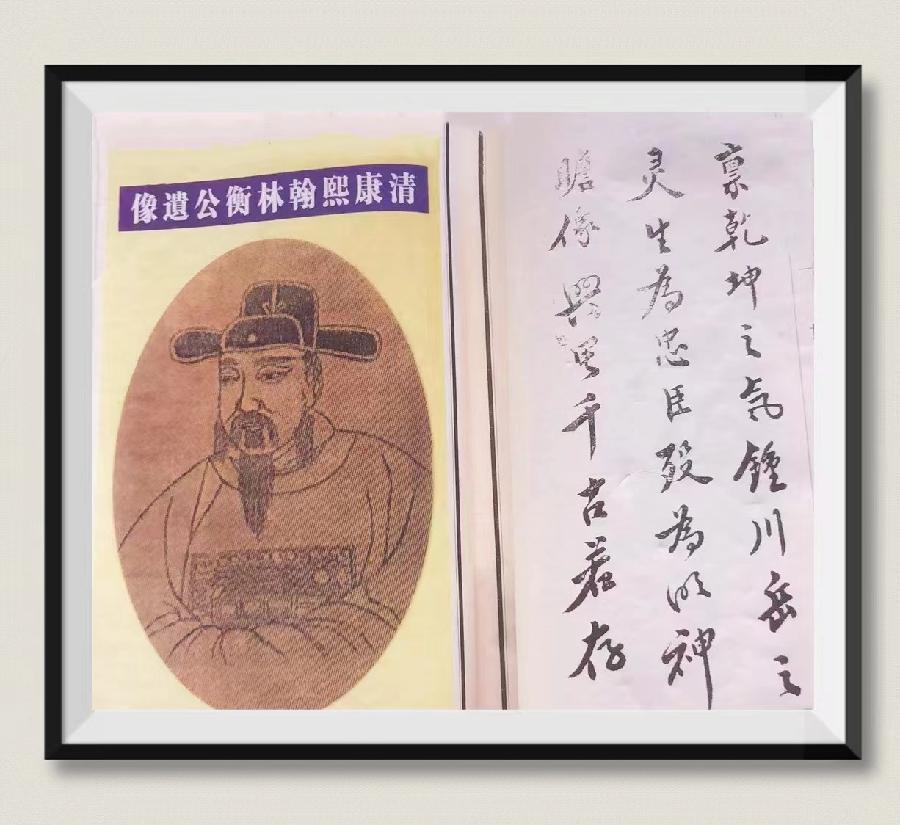 清康熙翰林衡公遺像
禀乾坤之氣鍾川岳之
灵生為忠臣殁為明神
瞻像興思千古著存